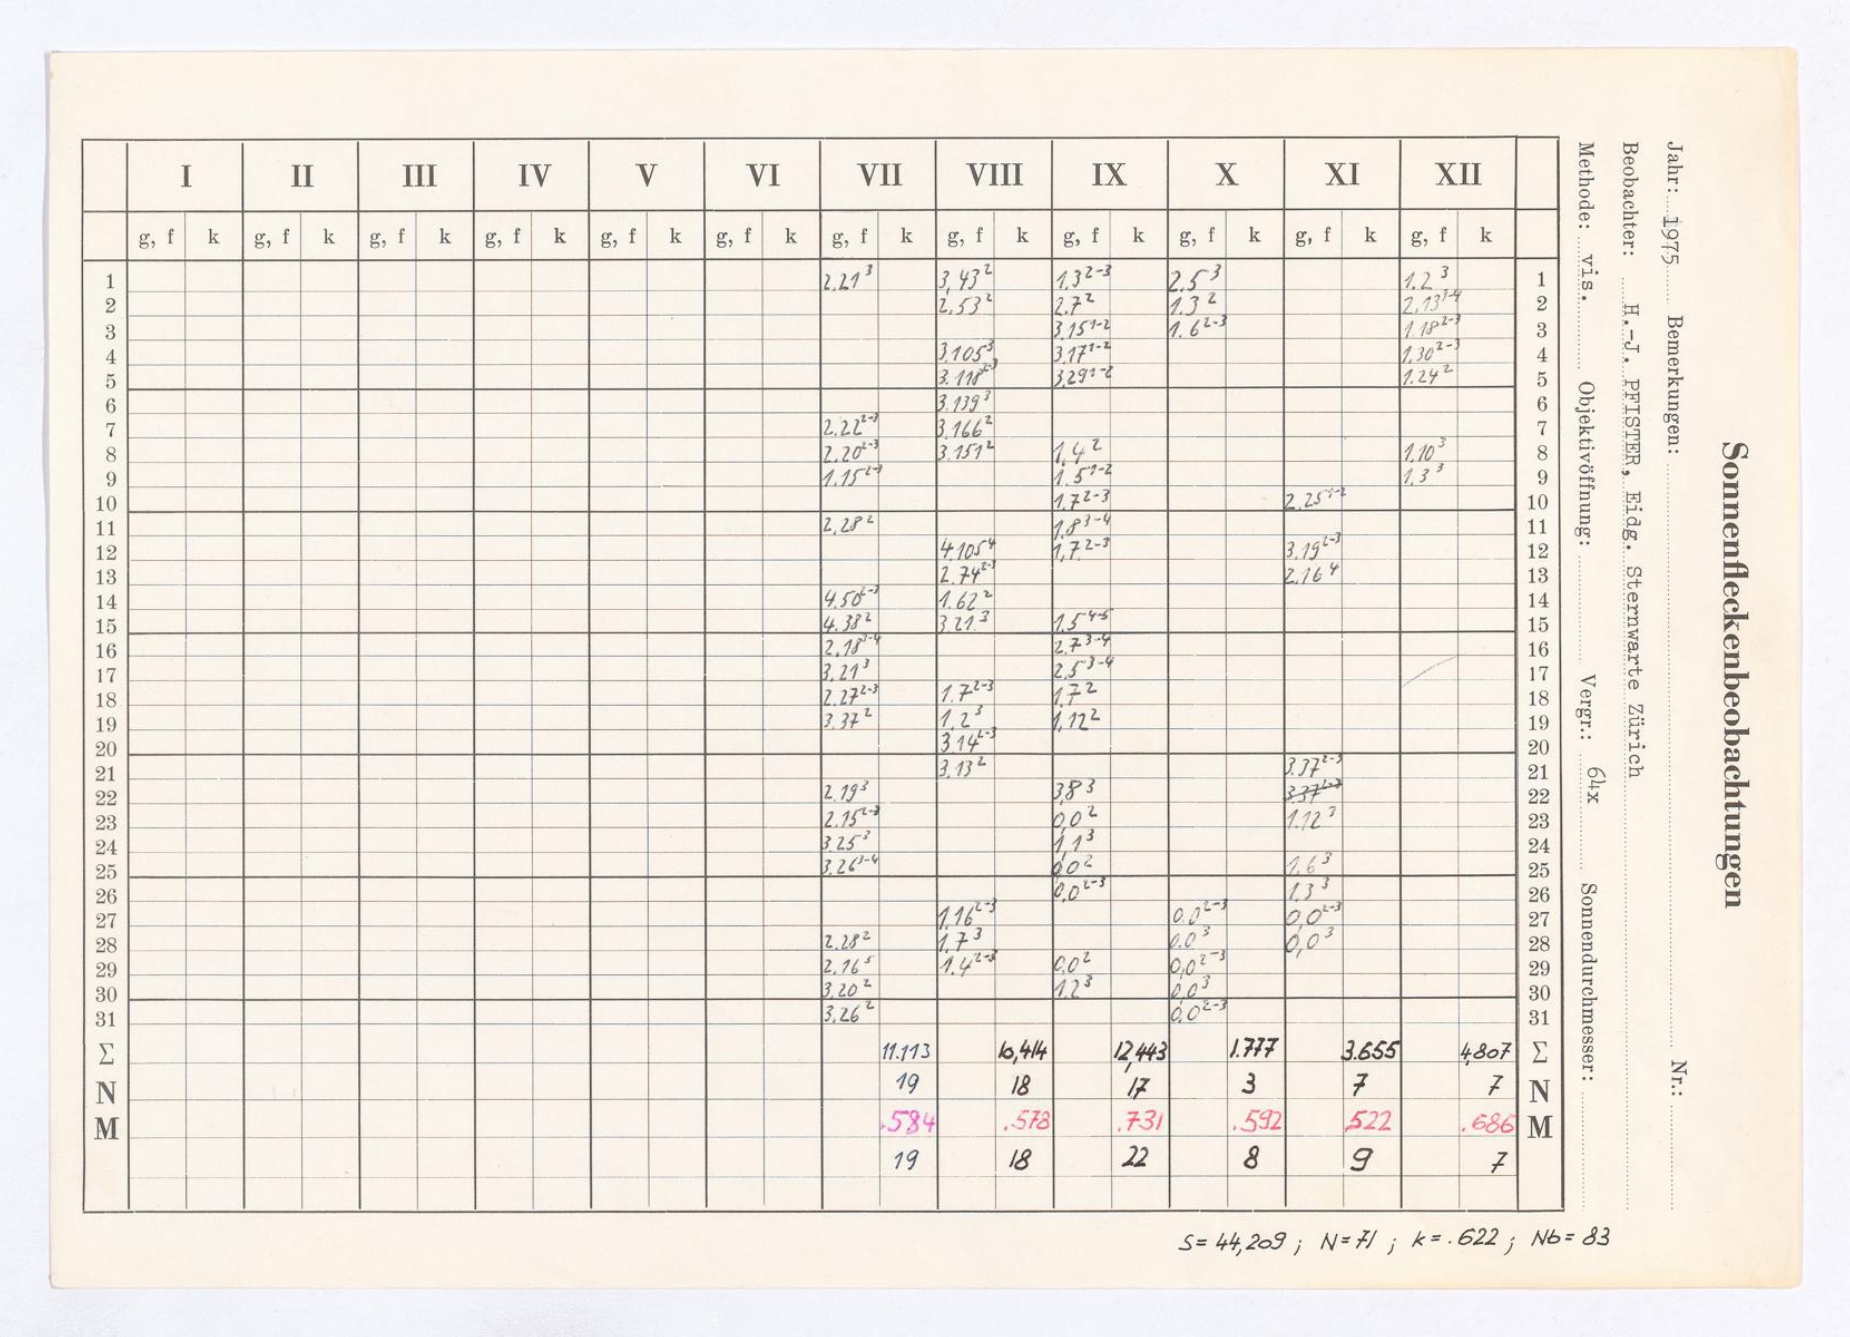 Sonnenfleckenbeobachtungen
Jahr: 1975 Bemerkungen: Nr.:
Beobachter: H.-J. PFISTER, Eidg. Sternwarte Zürich
Methode: vis. Objektivöffnung: Vergr.: 64x Sonnendurchmesser:
I II III IV V VI VII VIII IX X XI XII
g, f k g, f k g, f k g, f k g, f k g, f k g, f k g, f k g, f k g, f k g, f k g, f k
1 2.21³ 3,43² 1.3²⁻³ 2.5³ 1.2³ 1
2 2.53² 2.7² 1.3² 2,13³⁻⁴ 2
3 3,15¹⁻² 1.6²⁻³ 1.18²⁻³ 3
4 3.105³ 3.17¹⁻² 1.30²⁻³ 4
5 3.118²⁻³ 3,29¹⁻² 1.24² 5
6 3.139³ 6
7 2.22²⁻³ 3.166² 7
8 2.20²⁻³ 3.151² 1,4² 1.10³ 8
9 1.15²⁻³ 1.5¹⁻² 1.3³ 9
10 1.7²⁻³ 2.25¹⁻² 10
11 2,28² 1.8³⁻⁴ 11
12 4.105⁴ 1,7²⁻³ 3.19²⁻³ 12
13 2.74²⁻³ 2.16⁴ 13
14 4.50²⁻³ 1.62² 14
15 4.38² 3.21³ 1.5⁴⁻⁵ 15
16 2.18³⁻⁴ 2.7³⁻⁴ 16
17 3.21³ 2.5³⁻⁴ 17
18 2.27²⁻³ 1.7²⁻³ 1.7² 18
19 3.37² 1.2³ 1,12² 19
20 3.14²⁻³ 20
21 3.13² 3.37²⁻³ 21
22 2.19³ 3,8³ 3.37²⁻³ 22
23 2.15²⁻³ 0,0² 1.12³ 23
24 3.25³ 1,1³ 24
25 3.26³⁻⁴ 0,0² 1.6³ 25
26 0,0²⁻³ 1.3³ 26
27 1.16²⁻³ 0.0²⁻³ 0,0²⁻³ 27
28 2.28² 1.7³ 0.0³ 0,0³ 28
29 2.16⁵ 1.4²⁻³ 0,0² 0,0²⁻³ 29
30 3.20² 1.2³ 0,0³ 30
31 3,26² 0,0²⁻³ 31
Σ 11.113 10,414 12,443 1.777 3.655 4,807 Σ
N 19 18 17 3 7 7 N
M .584 .578 .731 .592 .522 .686 M
19 18 22 8 9 7
S = 44,209 ; N = 71 ; k = .622 ; Nb = 83